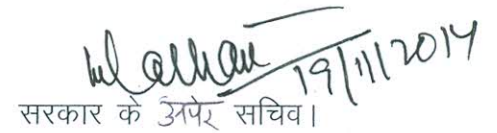 19/11/2014
सरकार के अपर सचिव।